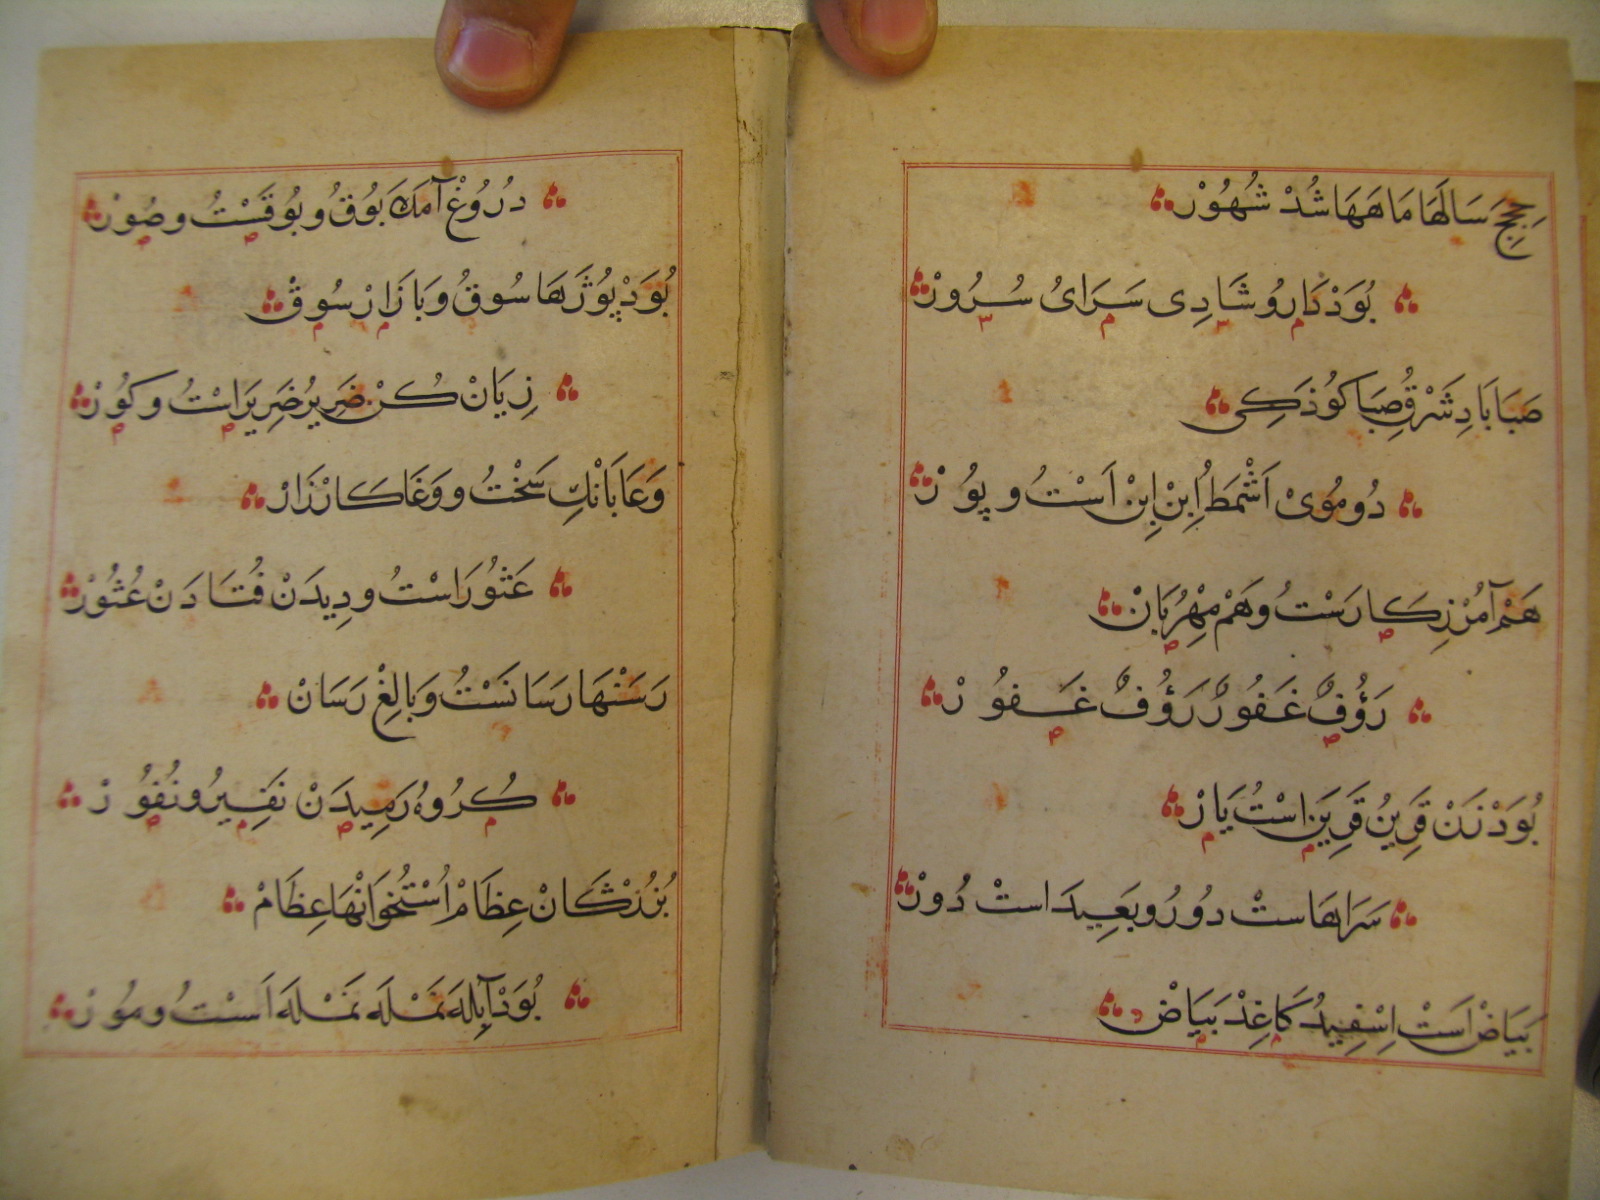 حِجَجْ سَالهَا مَاهَهَا شُدْ شُهُوْرْ
بُوَدْ دَارِ و شَادِی سَرَایُ سُرُورْ
صَبَا بَادِ شَرْقُ صِبَا کُوْدَکِی
دُو مُوی اَشْمَطُ اِبنْ اِبنْ اَسْتُ و پُورْ
هَمْ آمُرْزِکَارَسْتُ وهَمْ مِهْرُبَانْ
رَؤُفٌ غَفُورٌ رَؤُفٌ غَفُوْرْ
بُوَدْ زَنْ قَرِینُ قَرِینَ اسْتُ یَارْ
سَرَابهَاستْ دُورُ و بَعِیدَ استْ دُورْ
بَیَاضْ اَسْتْ اِسْفِیدُ کَاغِذْ بَیَاضْ
دُرُوْغْ آمَدَ بَوُقُ و بُوقَسْتُ و صُوْرْ
بُوَدْ پُوْزَهَا سُوقُ وَ بَازَارْ سُوقْ
زِیَانْ کُنْ ضَرِیرُ ضَرِیرَ اسْتُ و کَوُرْ
وَعَا بَانْكِ سَخْتُ و وَغَا کَارْزَارْ
عَثوُرَ اسْتُ و دِیدَنْ فُتَادَنْ عُثوُرْ
رَسَنْهَا رَسَانَسْتُ وَبَالِغْ رَسَانْ
کُرُوهُ رَمِیدَنْ نَفِیرُ و نُفُوْرْ
بُزُرْکَانْ عِظَامْ اُسْتُخوَانْهَا عِظَامْ
بُوَدْ آبِلَه نَمْلَه نَمْلَه اَسْتُ و مُورْ